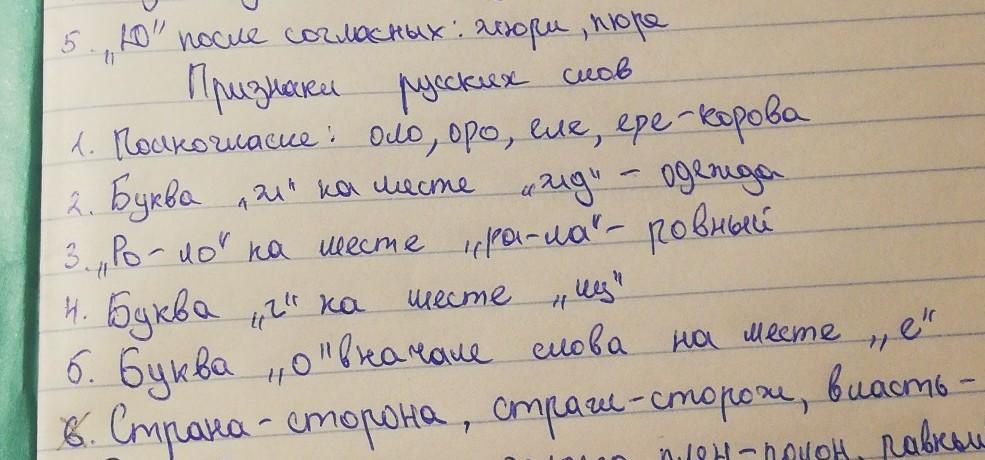 5. „Ю" после согласных: жюри, пюре
Признаки русских слов
1. Полногласие: оло, оро, еле, ере - корова
2. Буква „ж" на месте „жд" - одежда
3. „Ро-ло" на месте „ра-ла" - ровный
4. Буква „ч" на месте „щ"
5. Буква „о" вначале слова на месте „е"
6. Страна - сторона, страж - сторож, власть -
плен - полон, равный